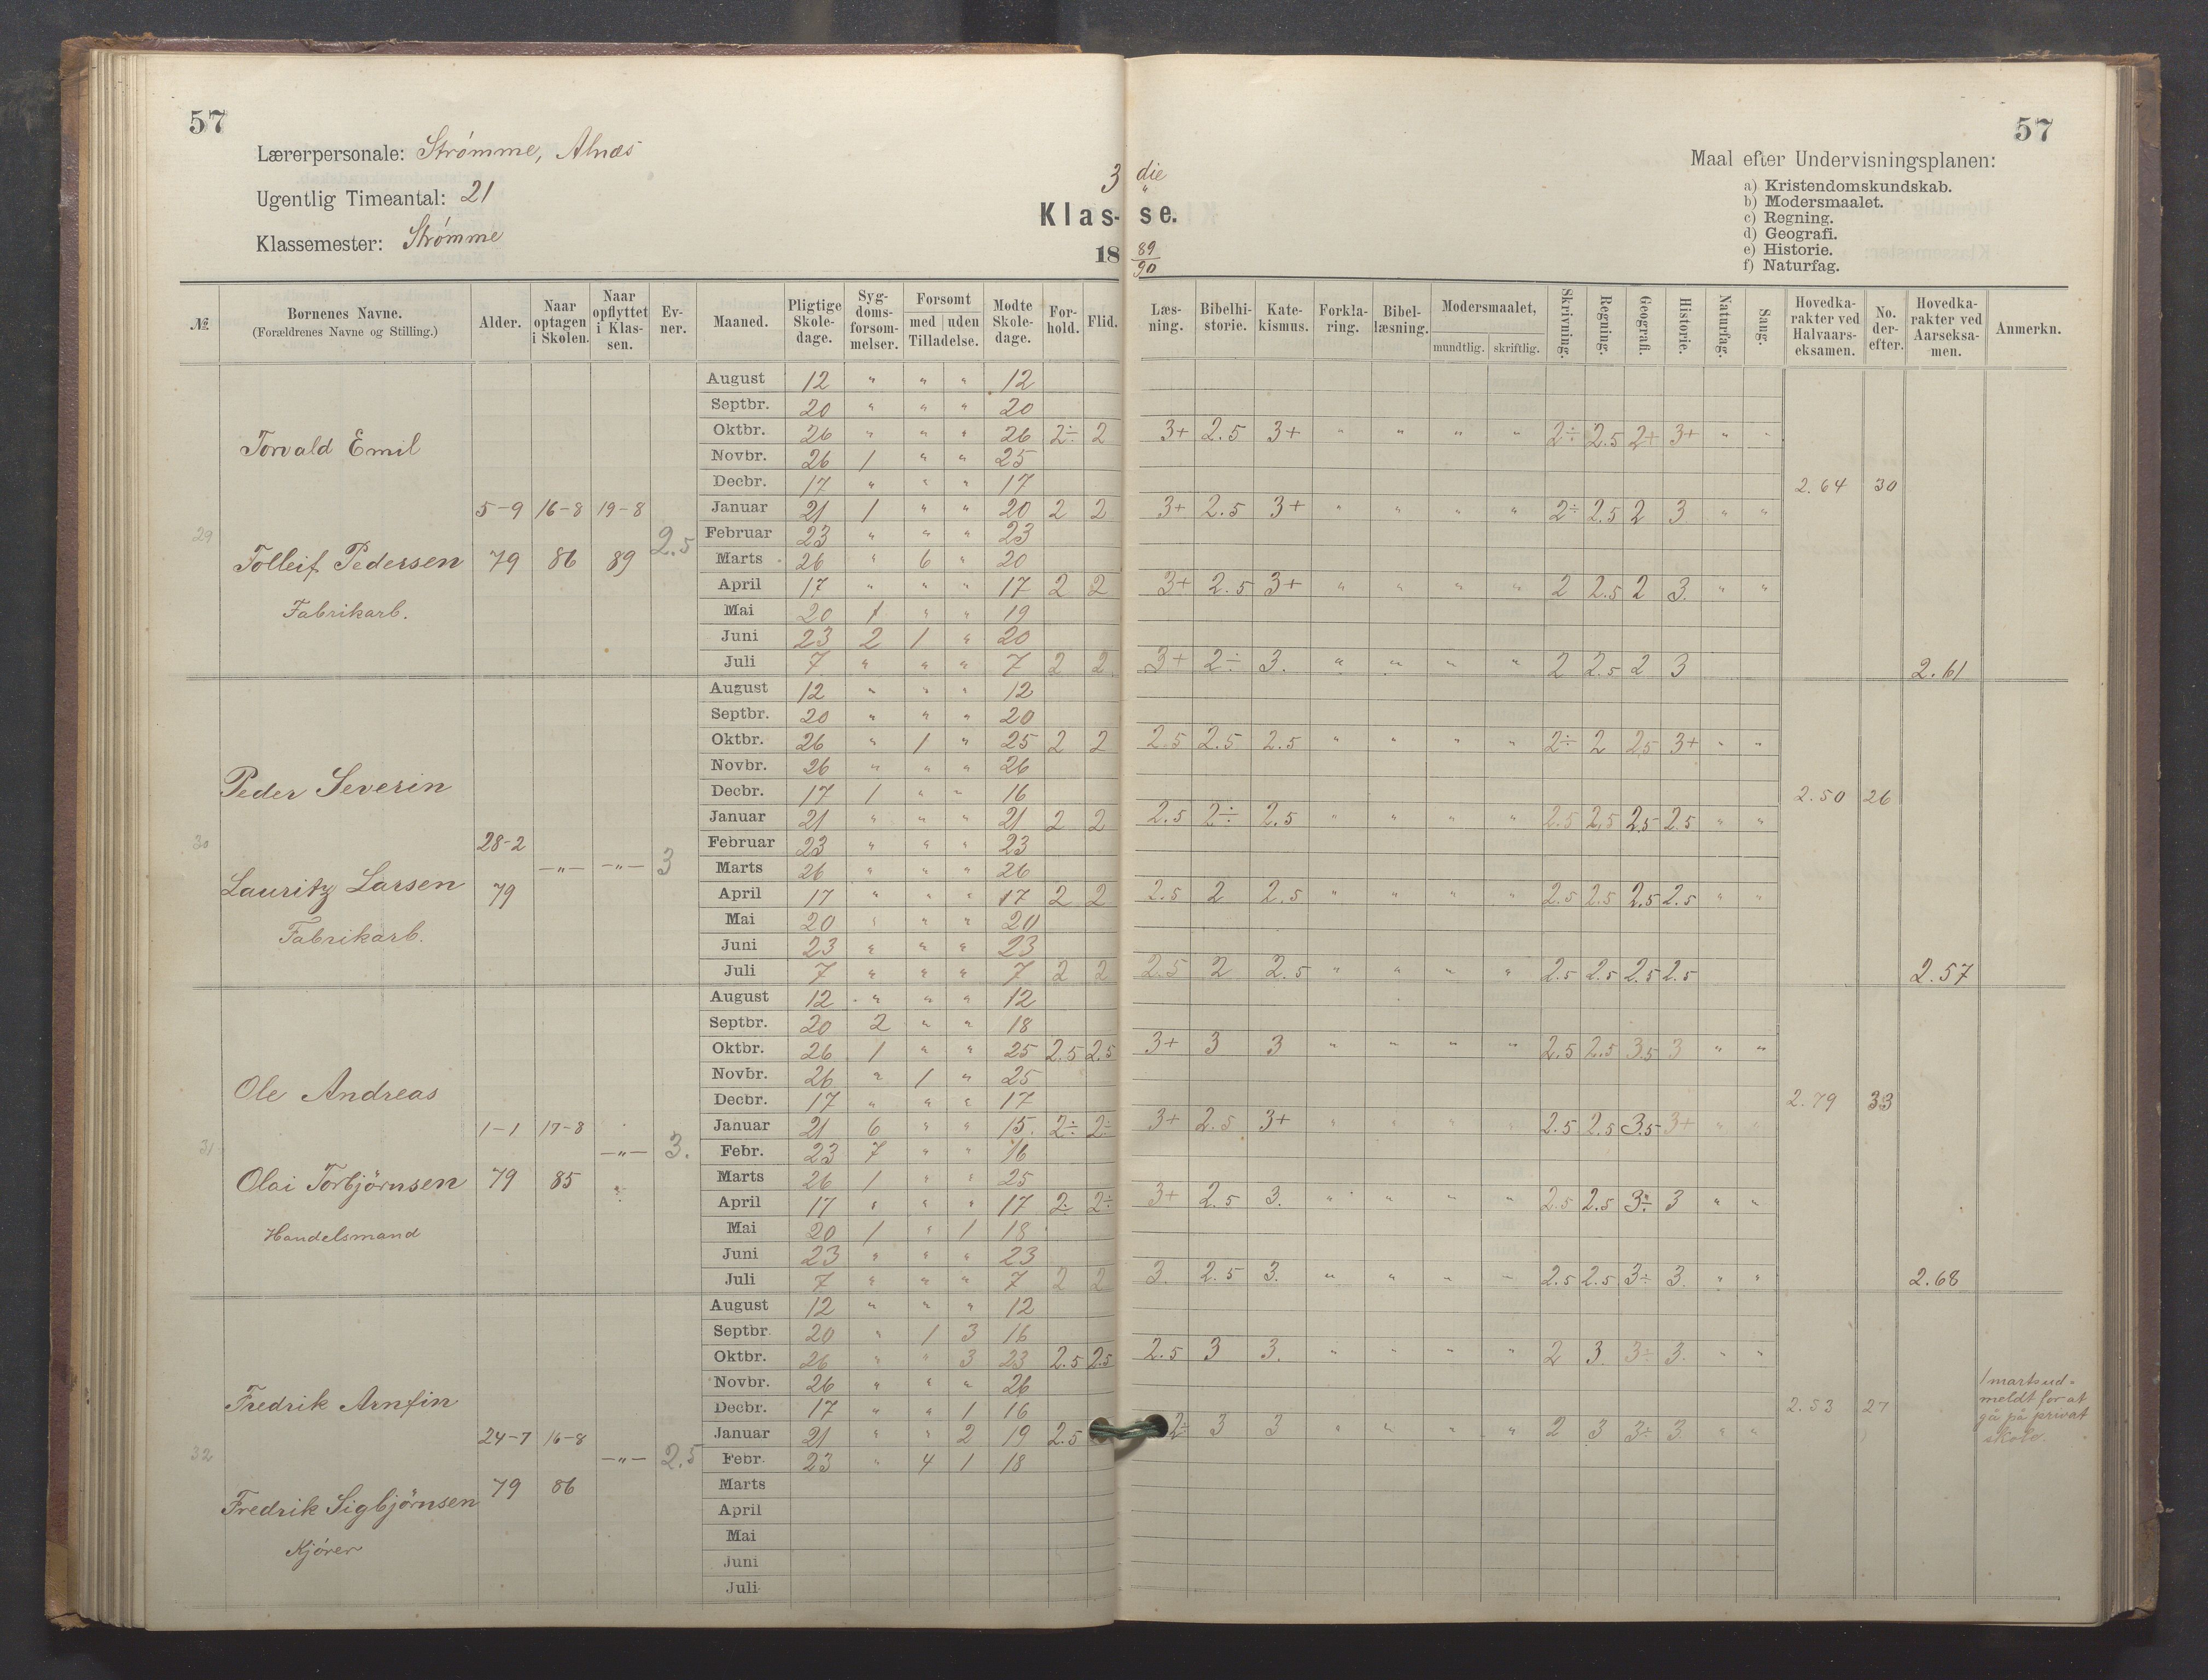 57
57
Lærerpersonale: Strømme, Alnæs
Ugentlig Timeantal: 21
Klassemester: Strømme
3 die
Klas- se.
18 89/90
Maal efter Undervisningsplanen:
a) Kristendomskundskab.
b) Modersmaalet.
c) Regning.
d) Geografi.
e) Historie.
f) Naturfag.
№ Børnenes Navne. (Forældrenes Navne og Stilling.) Alder. Naar optagen i Skolen. Naar opflyttet i Klassen. Evner. Maaned. Pligtige Skoledage. Sygdomsforsømmelser. Forsømt med uden Tilladelse. Mødte Skoledage. Forhold. Flid. Læsning. Bibelhistorie. Katekismus. Forklaring. Bibellæsning. Modersmaalet, mundtlig. skriftlig. Skrivning. Regning. Geografi. Historie. Naturfag. Sang. Hovedkarakter ved Halvaarseksamen. No. derefter. Hovedkarakter ved Aarseksamen. Anmerkn.
29 Torvald Emil
Tolleif Pedersen
Fabrikarb.
5-9 79 16-8 86 19-8 89 2.5
August 12 " " " 12
Septbr. 20 " " " 20
Oktbr. 26 " " " 26 2÷ 2 3+ 2.5 3+ " " " " 2÷ 2.5 2+ 3+ " "
Novbr. 26 1 " " 25
Decbr. 17 " " " 17 2.64 30
Januar 21 1 " " 20 2 2 3+ 2.5 3+ " " " " 2÷ 2.5 2 3 " "
Februar 23 " " " 23
Marts 26 " 6 " 20
April 17 " " " 17 2 2 3+ 2.5 3+ " " " " 2 2.5 2 3. " "
Mai 20 1 " " 19
Juni 23 2 1 " 20
Juli 7 " " " 7 2 2 3+ 2÷ 3. " " " " 2 2.5 2 3 2.61
30 Peder Severin
Lauritz Larsen
Fabrikarb.
28-2 79 -"- -"- 3
August 12 " " " 12
Septbr. 20 " " " 20
Oktbr. 26 " 1 " 25 2 2 2.5 2.5 2.5 " " " " 2÷ 2 2.5 3+ " "
Novbr. 26 " " " 26
Decbr. 17 1 " " 16 2.50 26
Januar 21 " " " 21 2 2 2.5 2÷ 2.5 " " " " 2.5 2.5 2.5 2.5 " "
Februar 23 " " " 23
Marts 26 " " " 26
April 17 " " " 17 2 2 2.5 2 2.5 " " " " 2.5 2.5 2.5 2.5 " "
Mai 20 " " " 20
Juni 23 " " " 23
Juli 7 " " " 7 2 2 2.5 2 2.5 " " " " 2.5 2.5 2.5 2.5 2.57
31 Ole Andreas
Olai Torbjørnsen
Handelsmand
1-1 79 17-8 85 -"- 3.
August 12 " " " 12
Septbr. 20 2 " " 18
Oktbr. 26 1 " " 25 2.5 2.5 3+ 3 3 " " " " 2.5 2.5 3.5 3 " "
Novbr. 26 " 1 " 25
Decbr. 17 " " " 17 2.79 33
Januar 21 6 " " 15. 2÷ 2÷ 3+ 2.5 3+ " " " " 2.5 2.5 3.5 3+ " "
Febr. 23 7 " " 16
Marts 26 1 " " 25
April 17 " " " 17 2÷ 2÷ 3+ 2.5 3. " " " " 2.5 2.5 3÷ 3 " "
Mai 20 1 " 1 18
Juni 23 " " " 23
Juli 7 " " " 7 2 2 3. 2.5 3. " " " " 2.5 2.5 3÷ 3. " " 2.68
32 Fredrik Arnfin
Fredrik Sigbjørnsen
Kjører
24-7 79 16-8 86 -"- 2.5
August 12 " " " 12
Septbr. 20 " 1 3 16
Oktbr. 26 " " 3 23 2.5 2.5 2.5 3 3. " " " " 2 3. 3÷ 3. " "
Novbr. 26 " " " 26
Decbr. 17 " " 1 16 2.53 27
Januar 21 " " 2 19 2.5 2÷ 3 3 " " " " 2 3 3÷ 3. " "
Febr. 23 " 4 1 18
Marts
April
Mai
Juni
Juli
1 marts ud-
meldt for at
gå på privat
skole.